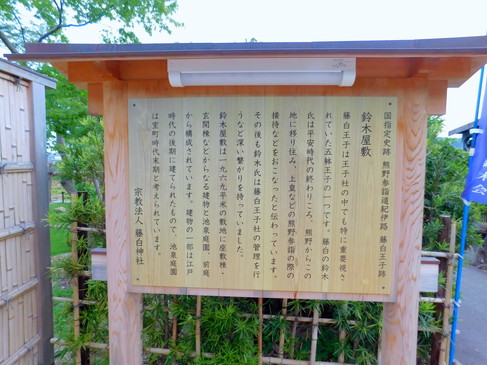 国指定史跡 熊野参詣道紀伊路 藤白王子跡
鈴木屋敷
藤白王子は王子社の中でも特に重要視さ
れていた五躰王子の一つです。藤白の鈴木
氏は平安時代の終わりころ、熊野からこの
地に移り住み、上皇などの熊野参詣の際の
接待などをおこなったと伝わっています。
その後も鈴木氏は藤白王子社の管理を行
うなど深い繋がりを持っていました。
鈴木屋敷は一九六九平米の敷地に座敷棟・
玄関棟などからなる建物と池泉庭園、前庭
から構成されています。建物の一部は江戸
時代の後期に建てられたもので、池泉庭園
は室町時代末期と考えられています。
宗教法人 藤白神社